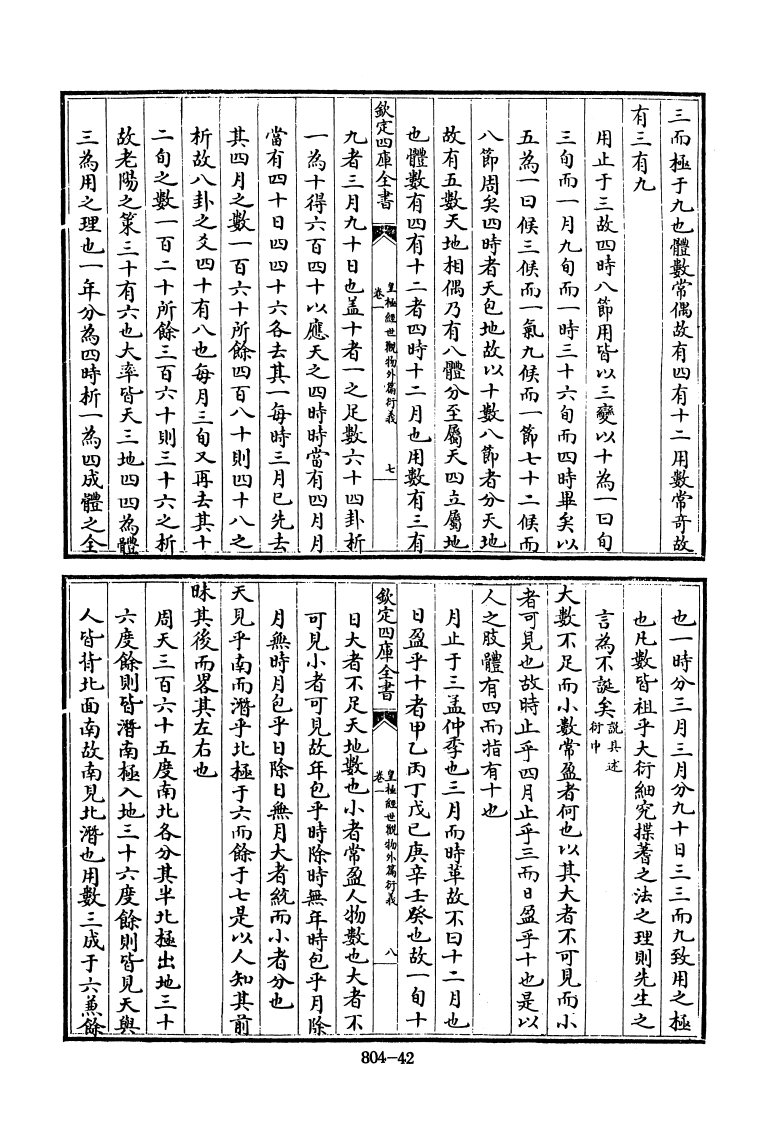 三而極于九也體數常偶故有四有十二用數常奇故
有三有九
用止于三故四時八節用皆以三變以十為一日旬
三旬而一月九旬而一時三十六旬而四時畢矣以
五為一日候三候而一氣九候而一節七十二候而
八節周矣四時者天包地故以十數八節者分天地
故有五數天地相偶乃有八體分至屬天四立屬地
也體數有四有十二者四時十二月也用數有三有
欽定四庫全書
皇極經世觀物外篇衍義
卷一
七
九者三月九十日也盖十者一之足數六十四卦析
一為十得六百四十以應天之四時時當有四月月
當有四十日四四十六各去其一每時三月已先去
其四月之數一百六十所餘四百八十則四十八之
析故八卦之爻四十有八也每月三旬又再去其十
二旬之數一百二十所餘三百六十則三十六之析
故老陽之策三十有六也大率皆天三地四四為體
三為用之理也一年分為四時析一為四成體之全
也一時分三月三月分九十日三三而九致用之極
也凡數皆祖乎大衍細究揲蓍之法之理則先生之
言為不誕矣說具述
衍中
大數不足而小數常盈者何也以其大者不可見而小
者可見也故時止乎四月止乎三而日盈乎十也是以
人之肢體有四而指有十也
月止于三孟仲季也三月而時革故不曰十二月也
日盈乎十者甲乙丙丁戊己庚辛壬癸也故一旬十
欽定四庫全書
皇極經世觀物外篇衍義
卷一
八
日大者不足天地數也小者常盈人物數也大者不
可見小者可見故年包乎時除時無年時包乎月除
月無時月包乎日除日無月大者統而小者分也
天見乎南而潛乎北極于六而餘于七是以人知其前
昧其後而畧其左右也
周天三百六十五度南北各分其半北極出地三十
六度餘則皆潛南極入地三十六度餘則皆見天與
人皆背北面南故南見北潛也用數三成于六兼餘
804-42